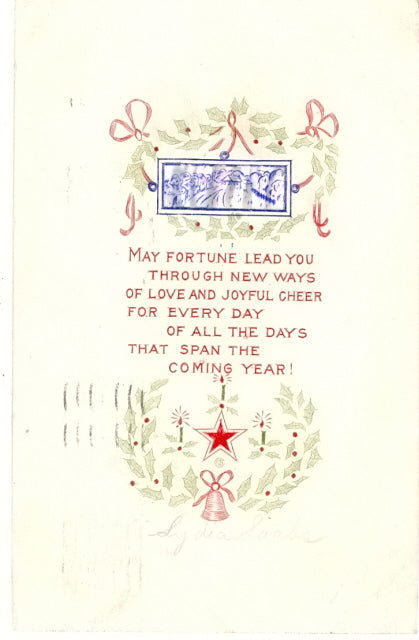 MAY FORTUNE LEAD YOU
THROUGH NEW WAYS
OF LOVE AND JOYFUL CHEER
FOR EVERY DAY
OF ALL THE DAYS
THAT SPAN THE
COMING YEAR!
Lydia